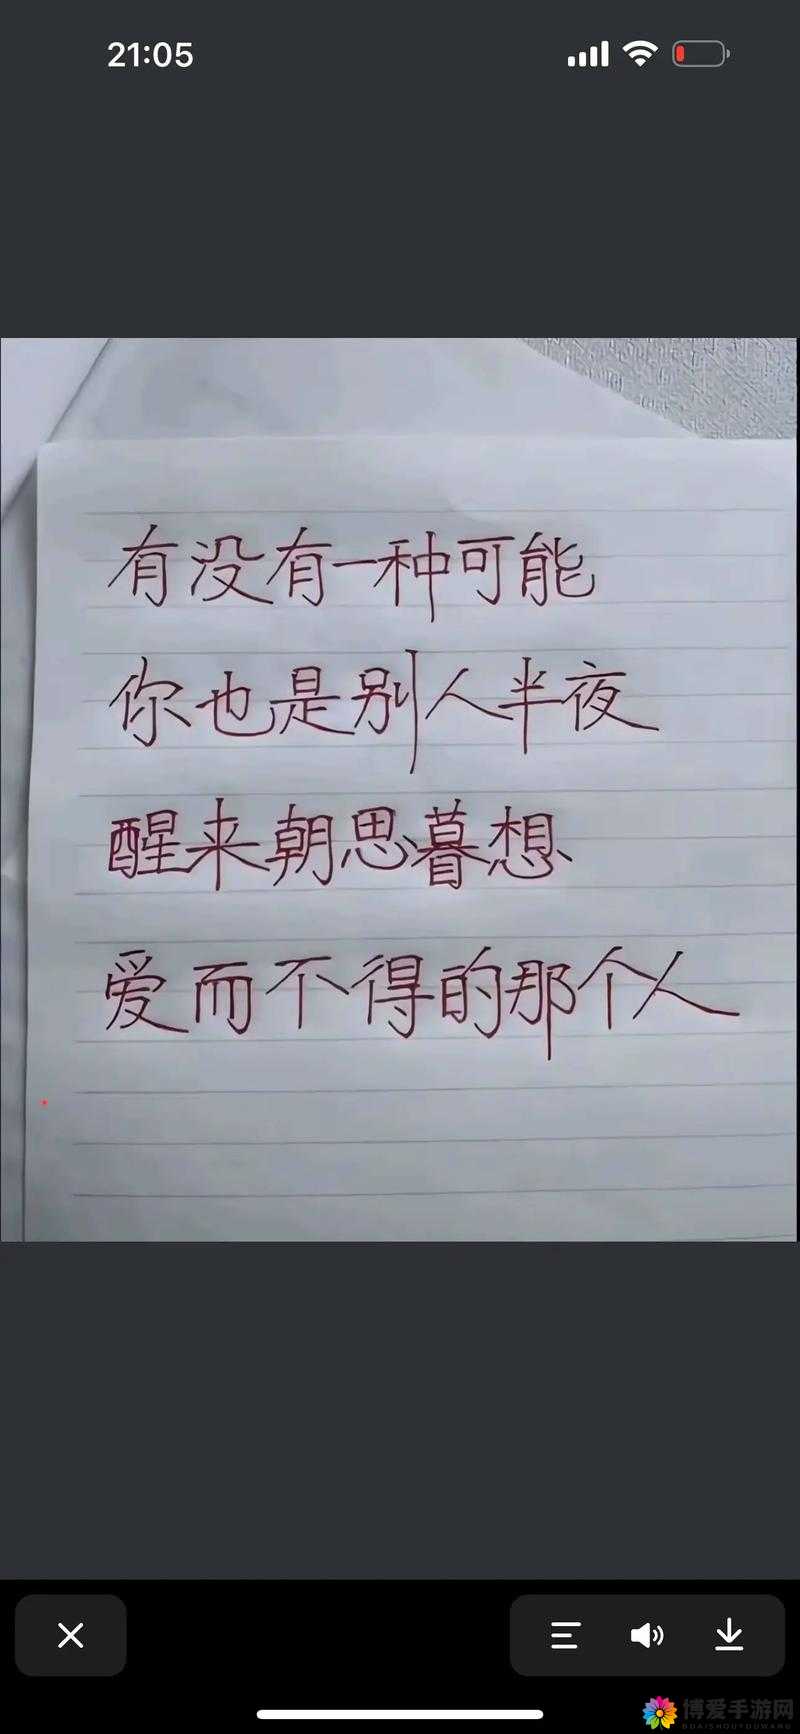 21:05
有没有一种可能
你也是别人半夜
醒来朝思暮想
爱而不得的那个人
博爱手游网
BOAISHOUYOUWANG